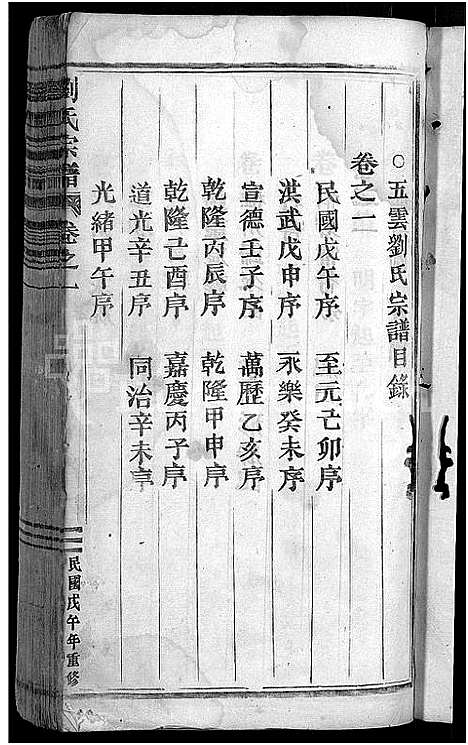 ○五雲劉氏宗譜目錄
卷之一
民國戊午序 至元己卯序
洪武戊申序 永樂癸未序
宣德壬子序 萬歷乙亥序
乾隆丙辰序 乾隆甲申序
乾隆己酉序 嘉慶丙子序
道光辛丑序 同治辛未序
光緒甲午序
劉氏宗譜 卷之一
民國戊午年重修